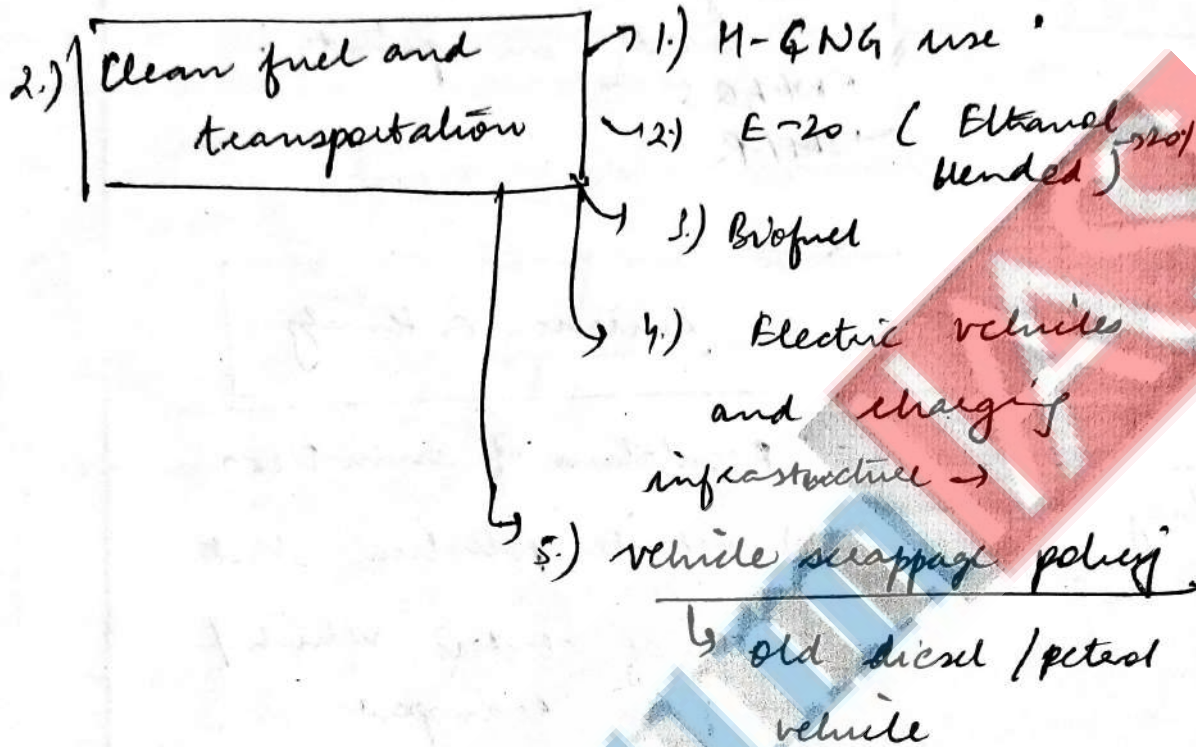 2.) Clean fuel and
transportation
1.) H-CNG use
2.) E-20. ( Ethanol
blended ) → 20%
3.) Biofuel
4.) Electric vehicles
and charging
infrastructure →
5.) vehicle scrappage policy
↳ old diesel / petrol
vehicle
IAS